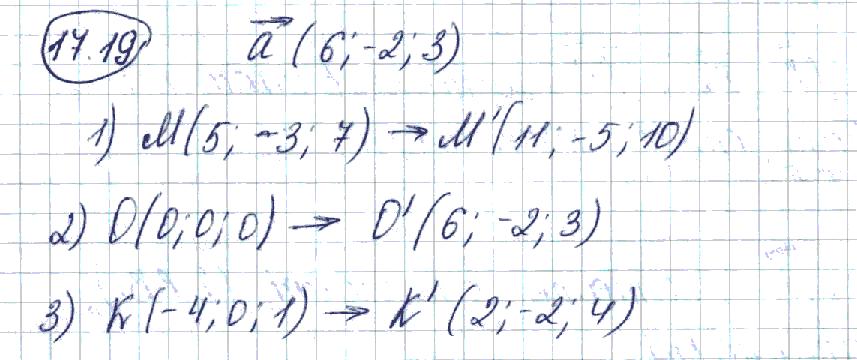 17.19 a⃗ (6; -2; 3)
1) M(5; -3; 7) → M'(11; -5; 10)
2) O(0; 0; 0) → O'(6; -2; 3)
3) K(-4; 0; 1) → K'(2; -2; 4)